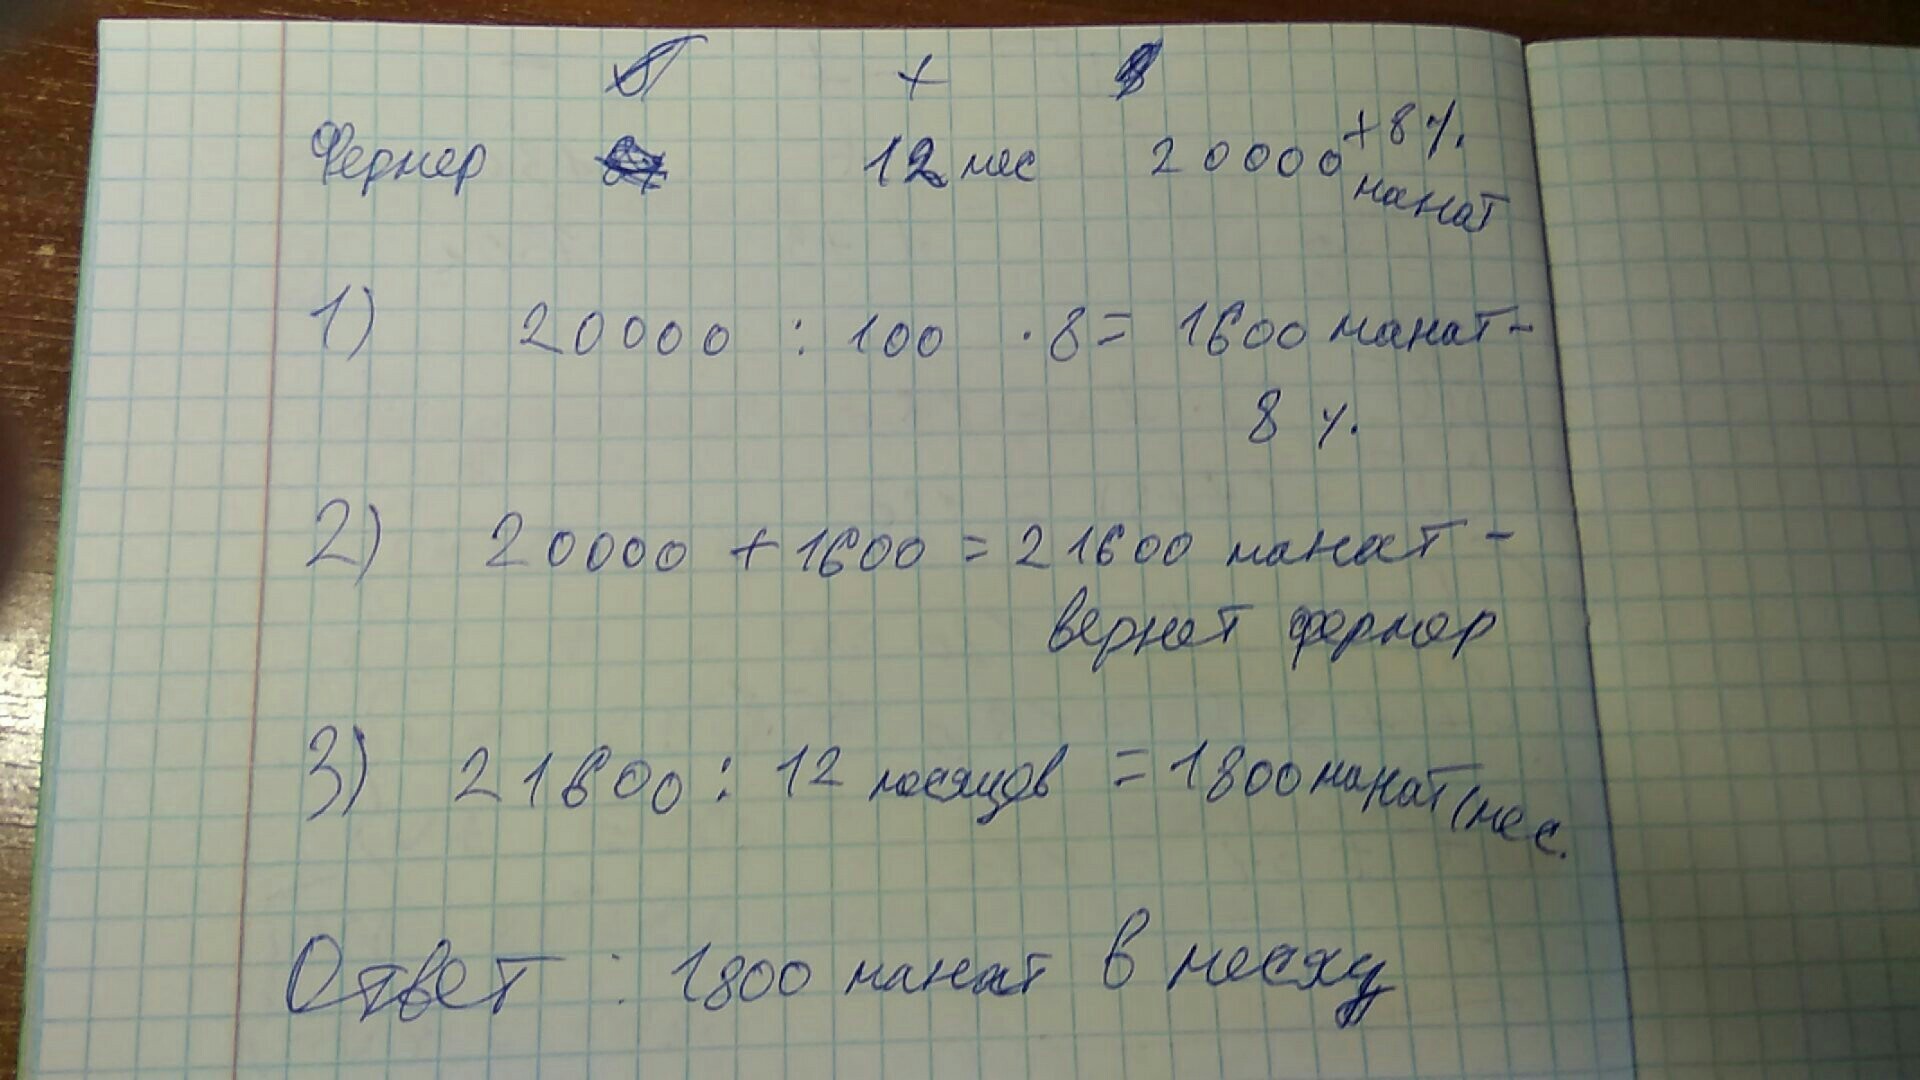 +
Фермер 12 мес 20000 +8%. манат
1) 20000 : 100 · 8 = 1600 манат -
8 %.
2) 20000 + 1600 = 21600 манат -
вернет фермер
3) 21600 : 12 месяцев = 1800 манат/мес.
Ответ : 1800 манат в месяц